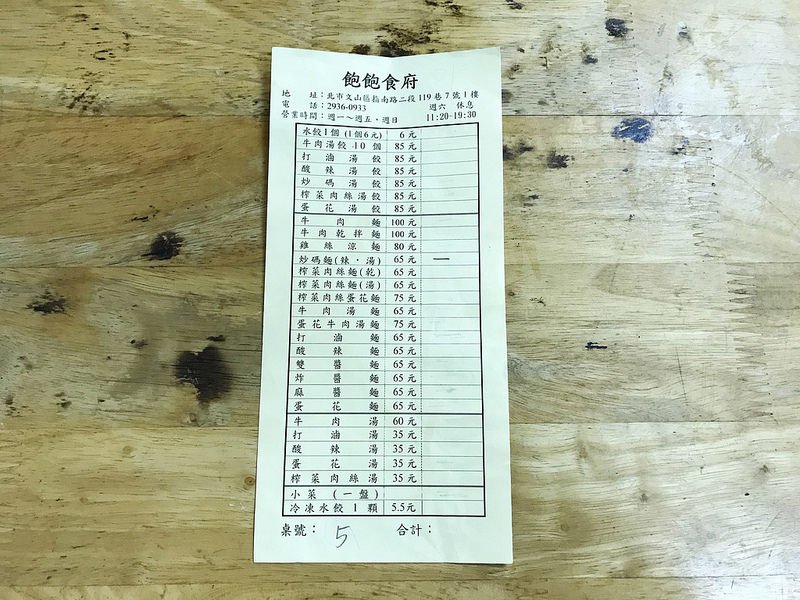 飽飽食府
地 址：北市文山區指南路二段119巷7號1樓
電 話：2936-0933 週六 休息
營業時間：週一～週五，週日 11:20-19:30
水餃1個 (1個6元) 6元
牛肉湯餃 10 個 85元
打滷湯餃 85元
酸辣湯餃 85元
炒碼湯餃 85元
榨菜肉絲湯餃 85元
蛋花湯餃 85元
牛肉麵 100元
牛肉乾拌麵 100元
雞絲涼麵 80元
炒碼麵(辣．湯) 65元 一
榨菜肉絲麵(乾) 65元
榨菜肉絲麵(湯) 65元
榨菜肉絲蛋花麵 75元
牛肉湯麵 65元
蛋花牛肉湯麵 75元
打滷麵 65元
酸辣麵 65元
雙醬麵 65元
炸醬麵 65元
麻醬麵 65元
蛋花麵 65元
牛肉湯 60元
打滷湯 35元
酸辣湯 35元
蛋花湯 35元
榨菜肉絲湯 35元
小菜 (一盤)
冷凍水餃1顆 5.5元
桌號： 5 合計：